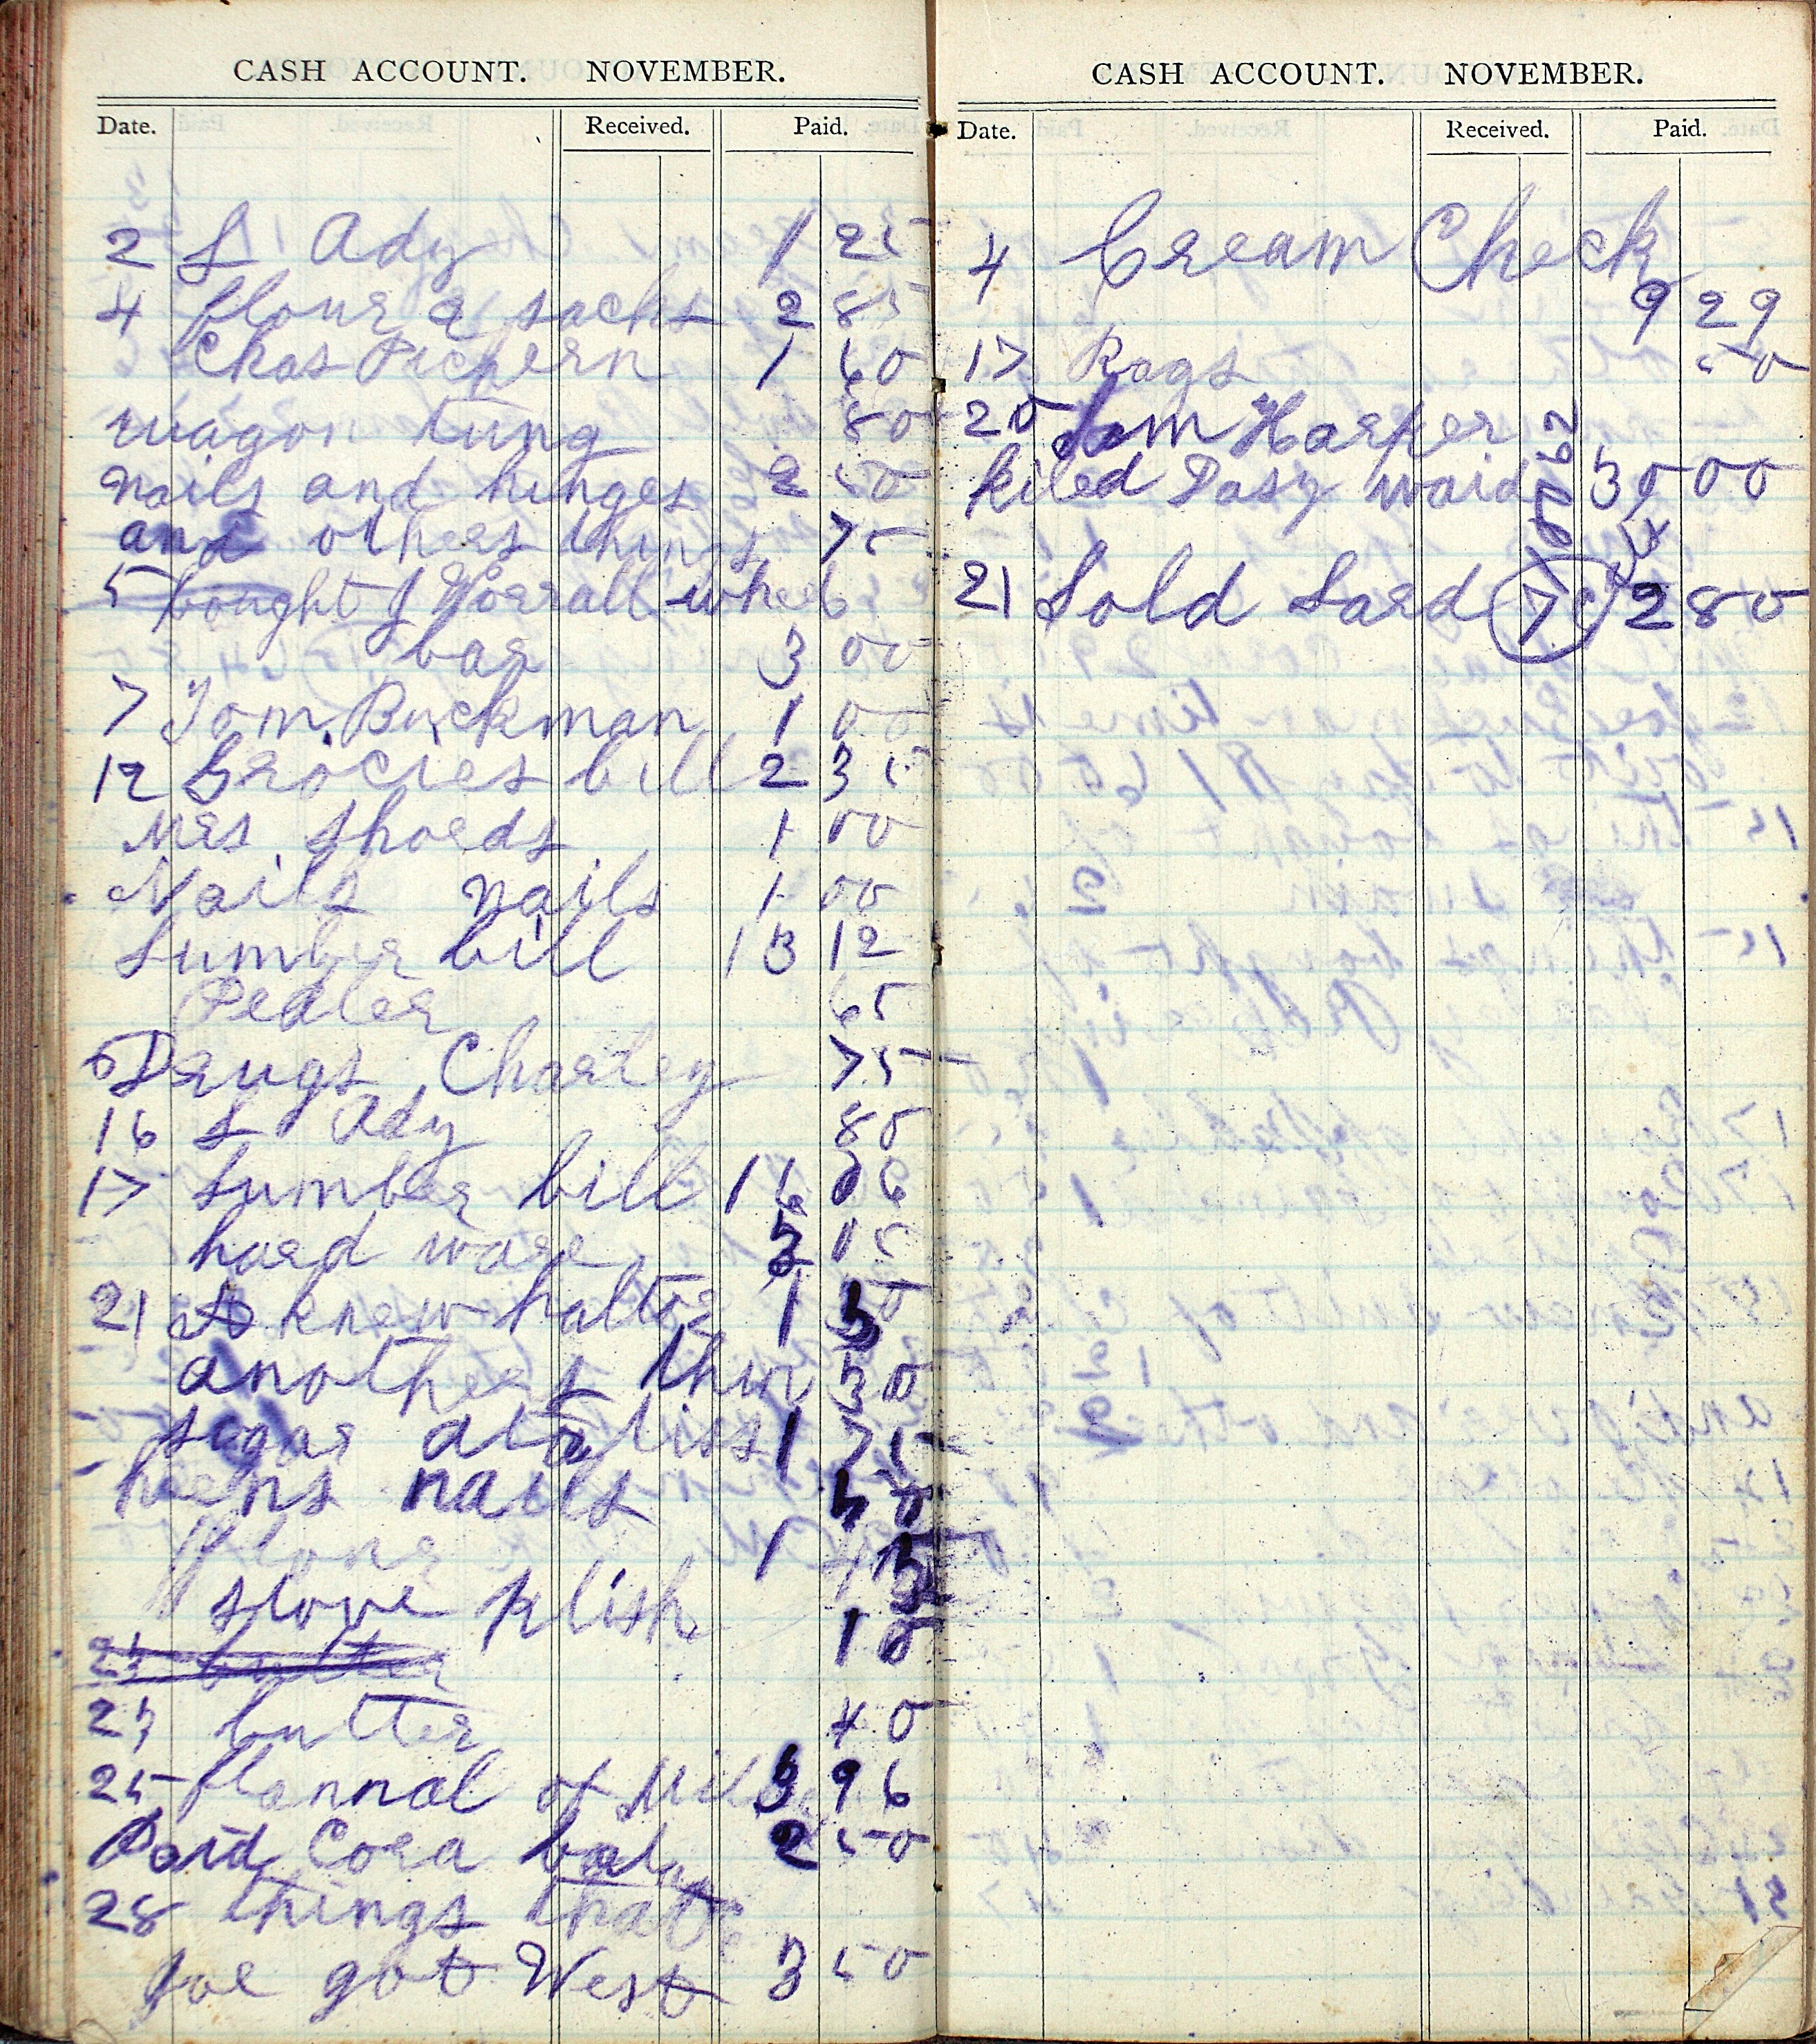 CASH ACCOUNT. NOVEMBER.
Date. Received. Paid.
2 L Ady 1 25
4 flour 2 sacks 2 85
Chas Pickern 1 60
wagon tung 80
nails and hinges 2 50
and others things 75
5 bought J Worrall wheel
bar 3 00
7 Tom Buckman 1 00
12 Grocies bill 2 35
Mrs Shoeds 1 00
Nails nails 1 00
Lumber bill 13 12
Pedler 65
Drugs Charley 75
16 L Ady 80
17 Lumber bill 16 06
hard ware 05
21 A knew halter 1
anothers thin 30
sugar 1 75
heens nails
flour 1
stove plish 10
23 butter
23 butter 40
25 flannal of 3 96
Paid Cora 2 50
28 things that
Joe got West 3 50
CASH ACCOUNT. NOVEMBER.
Date. Received. Paid.
4 Cream Check
9 29
17 Rags 50
20 Jim Harper
kiled Dasy waid 30 00
21 Sold Lard 7c 2 80